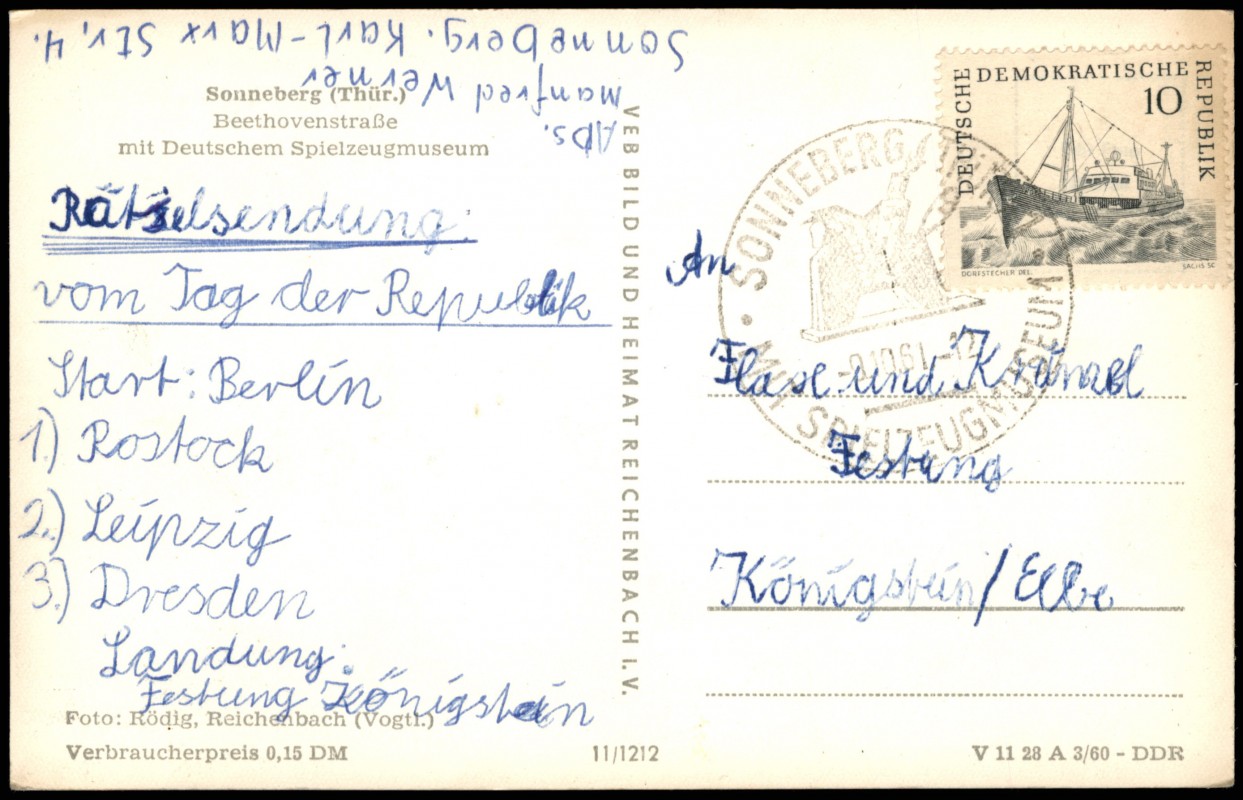 Sonneberg. Karl-Marx Str, 4.
Manfred Werner
Abs.
Sonneberg (Thür.)
Beethovenstraße
mit Deutschem Spielzeugmuseum
Rätselsendung
vom Tag der Republik
Start: Berlin
1.) Rostock
2.) Leipzig
3.) Dresden
Landung:
Festung Königstein
Foto: Rödig, Reichenbach (Vogtl.)
Verbraucherpreis 0,15 DM
VEB BILD UND HEIMAT REICHENBACH I. V.
11/1212
DEUTSCHE DEMOKRATISCHE REPUBLIK
10
DORFSTECHER DEL.
SACHS SC
SONNEBERG
MIT SPIELZEUGMUSEUM
An
Flax und Krümel
Festung
Königstein/Elbe
V 11 28 A 3/60 - DDR